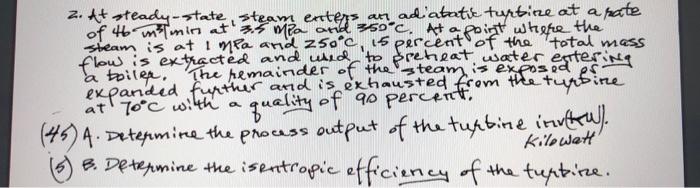 2. At steady-state, steam enters an adiabatic turbine at a rate
of 46 m³/min at 3.5 MPa and 350°C. At a point where the
steam is at 1 MPa and 250°C, 15 percent of the total mass
flow is extracted and used to preheat water entering
a boiler. The remainder of the steam is exposed or
expanded further and is exhausted from the turbine
at 70°C with a quality of 90 percent.
(45) A. Determine the process output of the turbine in
Kilowatt
(5) B. Determine the isentropic efficiency of the turbine.